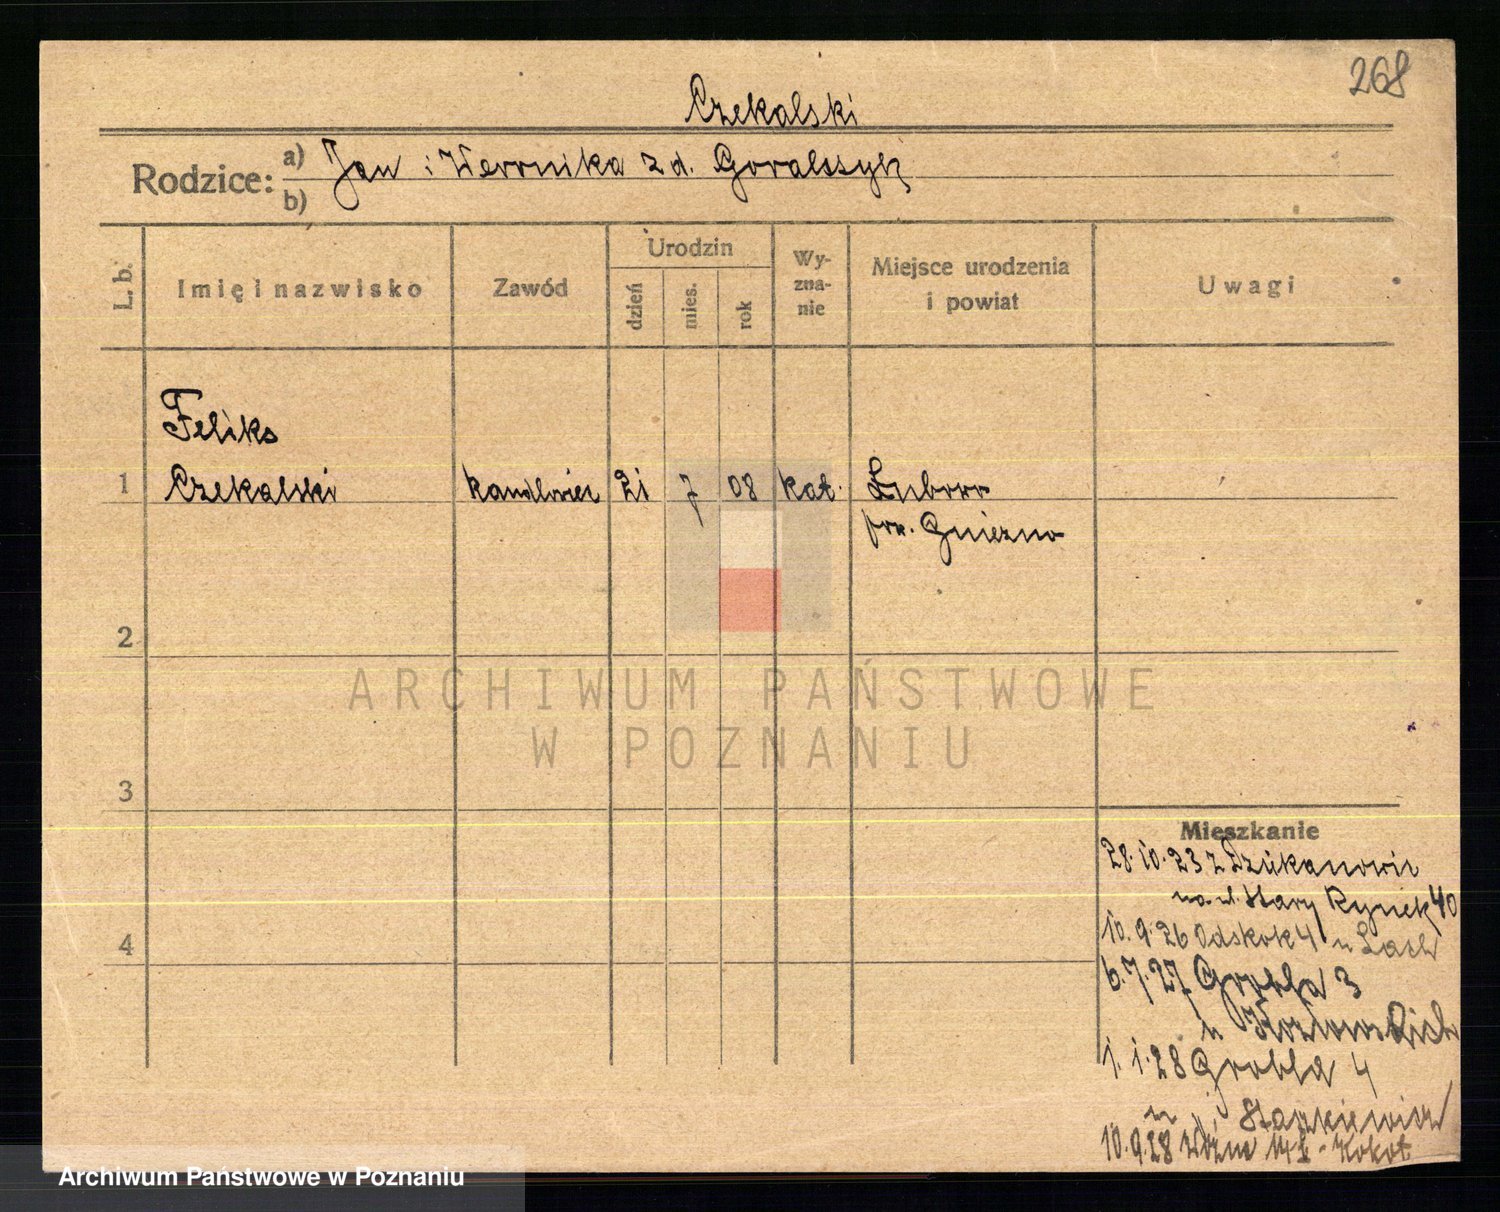 268
Czekalski
Rodzice: a) Jan i Weronika z d. Goralczyk
b)
L. b.
Imię i nazwisko
Zawód
Urodzin
dzień
mies.
rok
Wy-
zna-
nie
Miejsce urodzenia
i powiat
Uwagi
Feliks
1 Czekalski handlowiec 21 7 08 kat. Lubowo
pow. Gniezno
2
ARCHIWUM PAŃSTWOWE
W POZNANIU
3
Mieszkanie
28.10.23 z
na ul. Stary Rynek 40
4
10.9.26 Odskok 4 u Lach
6.7.27 Grobla 3
u
1.1.28 Grobla 4
u Stankiewicz
10.9.28 Woźna Kokot
Archiwum Państwowe w Poznaniu